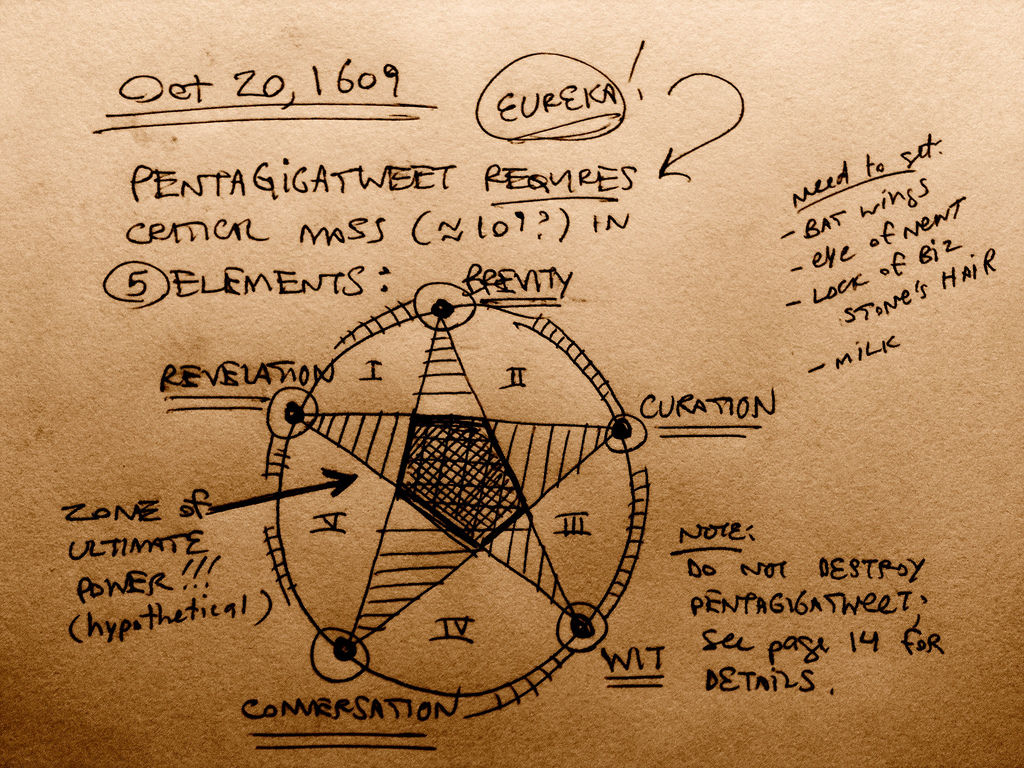 Oct 20, 1609
EUREKA!
PENTAGIGATWEET REQUIRES
CRITICAL MASS (≈109?) IN
5 ELEMENTS:
BREVITY
REVELATION
CURATION
WIT
CONVERSATION
I
II
III
IV
V
ZONE of
ULTIMATE
POWER!!!
(hypothetical)
Need to get:
- BAT wings
- eye of NEWT
- LOCK of BIZ
STONE'S HAIR
- MILK
NOTE:
DO NOT DESTROY
PENTAGIGATWEET.
See page 14 FOR
DETAILS.